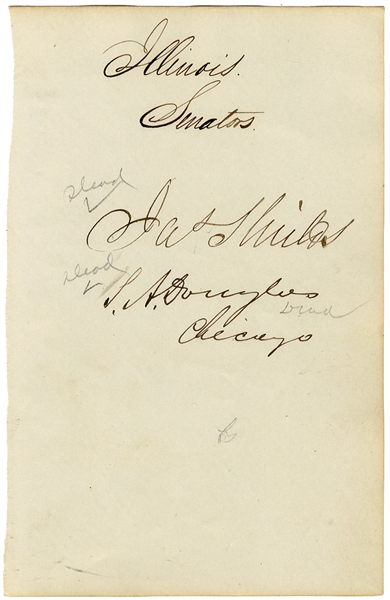 Illinois.
Senators.
Dead
Jas Shields
Dead
S. A. Douglas
Dead
Chicago